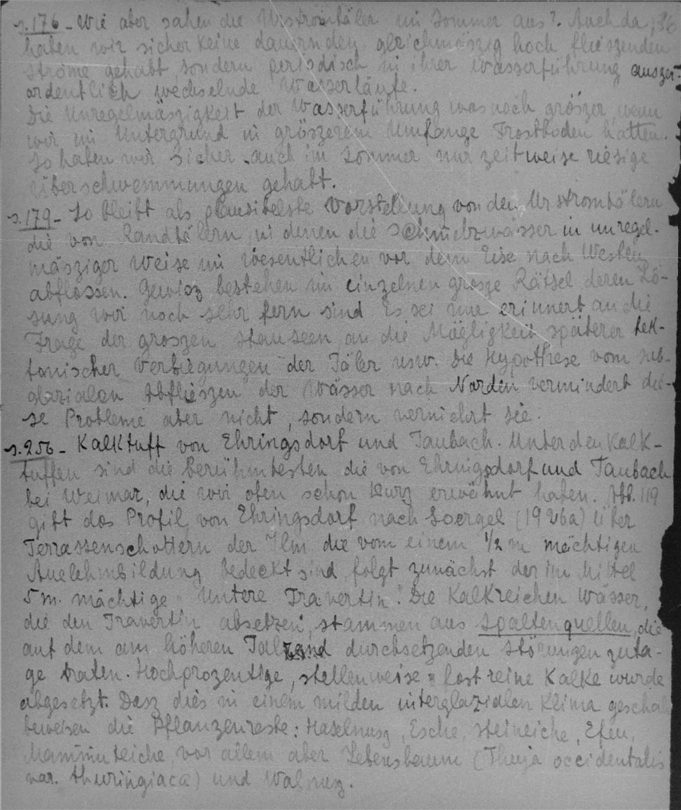 s.176 - Wie aber sahen die Urstromtäler im Sommer aus? Auch da,
haben wir sicher keine dauernden gleichmäszig hoch flieszenden
Ströme gehabt, sondern periodisch in ihrer Wasserführung auszer-
ordentlich wechselnde Wasserläufe.
Die Unregelmäszigkeit der Wasserführung was noch gröszer, wenn
wir im Untergrund in gröszerem Umfange Frostboden hatten.
So haben wir sicher auch im Sommer nur zeitweise riesige
Überschwemmungen gehabt.
s.179 - So bleibt als plausibelste Vorstellung von den Urstromtälern
die von Randtälern, in denen die Schmelzwässer in unregel-
mäsziger Weise im wesentlichen vor dem Eise nach Westen
abflossen. Gewisz bestehen im einzelnen grosze Rätsel deren Lö-
sung wir noch sehr fern sind Es sei nur erinnert an die
Frage der groszen Stauseen an die Mögligkeit späterer tek-
tonischer Verbiegungen der Täler usw. Die Hypothese vom sub-
glazialen Abflieszen der Wässer nach Norden vermindert die-
se Probleme aber nicht, sondern vermehrt sie.
s.256 - Kalktuff von Ehringsdorf und Taubach. Unter den Kalk-
tuffen sind die berühmtesten die von Ehringsdorf und Taubach
bei Weimar, die wir oben schon kurz erwähnt haben. Abb. 119
gibt das Profil von Ehringsdorf nach Soergel (1926a) Über
Terrassenschottern der Ilm die vom einem 1/2 m mächtigen
Auelehmbildung bedeckt sind, folgt zunächst der im Mittel
5 m. mächtige "Untere Travertin". Die Kalkreichen Wässer,
die den Travertin absetzen, stammen aus Spaltenquellen, die
auf dem am höheren Talrand durchsetzenden Störungen zuta-
ge traten. Hochprozentige, stellenweise fast reine Kalke wurde
abgesetzt. Dasz dies in einem milden interglazialen Klima geschah
beweisen die Pflanzenreste: Haselnusz, Esche, Steineiche, Efeu,
Mammuteiche, vor allem aber Lebensbaum (Thuja occidentalis
var. thuringiaca) und Walnusz.